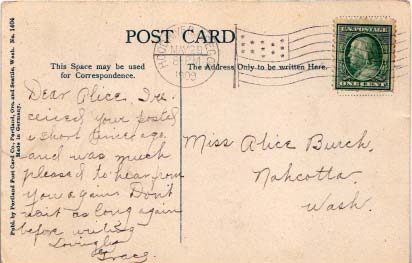 POST CARD
MAY 28
1909
This Space may be used
for Correspondence.
The Address Only to be written Here.
ONE CENT
Dear Alice. I re-
ceived your postal
a short time ago.
and was much
pleased to hear from
you again. Don't
wait as long again
before writing
Lovingly
Grace.
Miss Alice Burch,
Nahcotta,
Wash.
Pub. by Portland Post Card Co., Portland, Ore. and Seattle, Wash. No. 1404
Made in Germany.